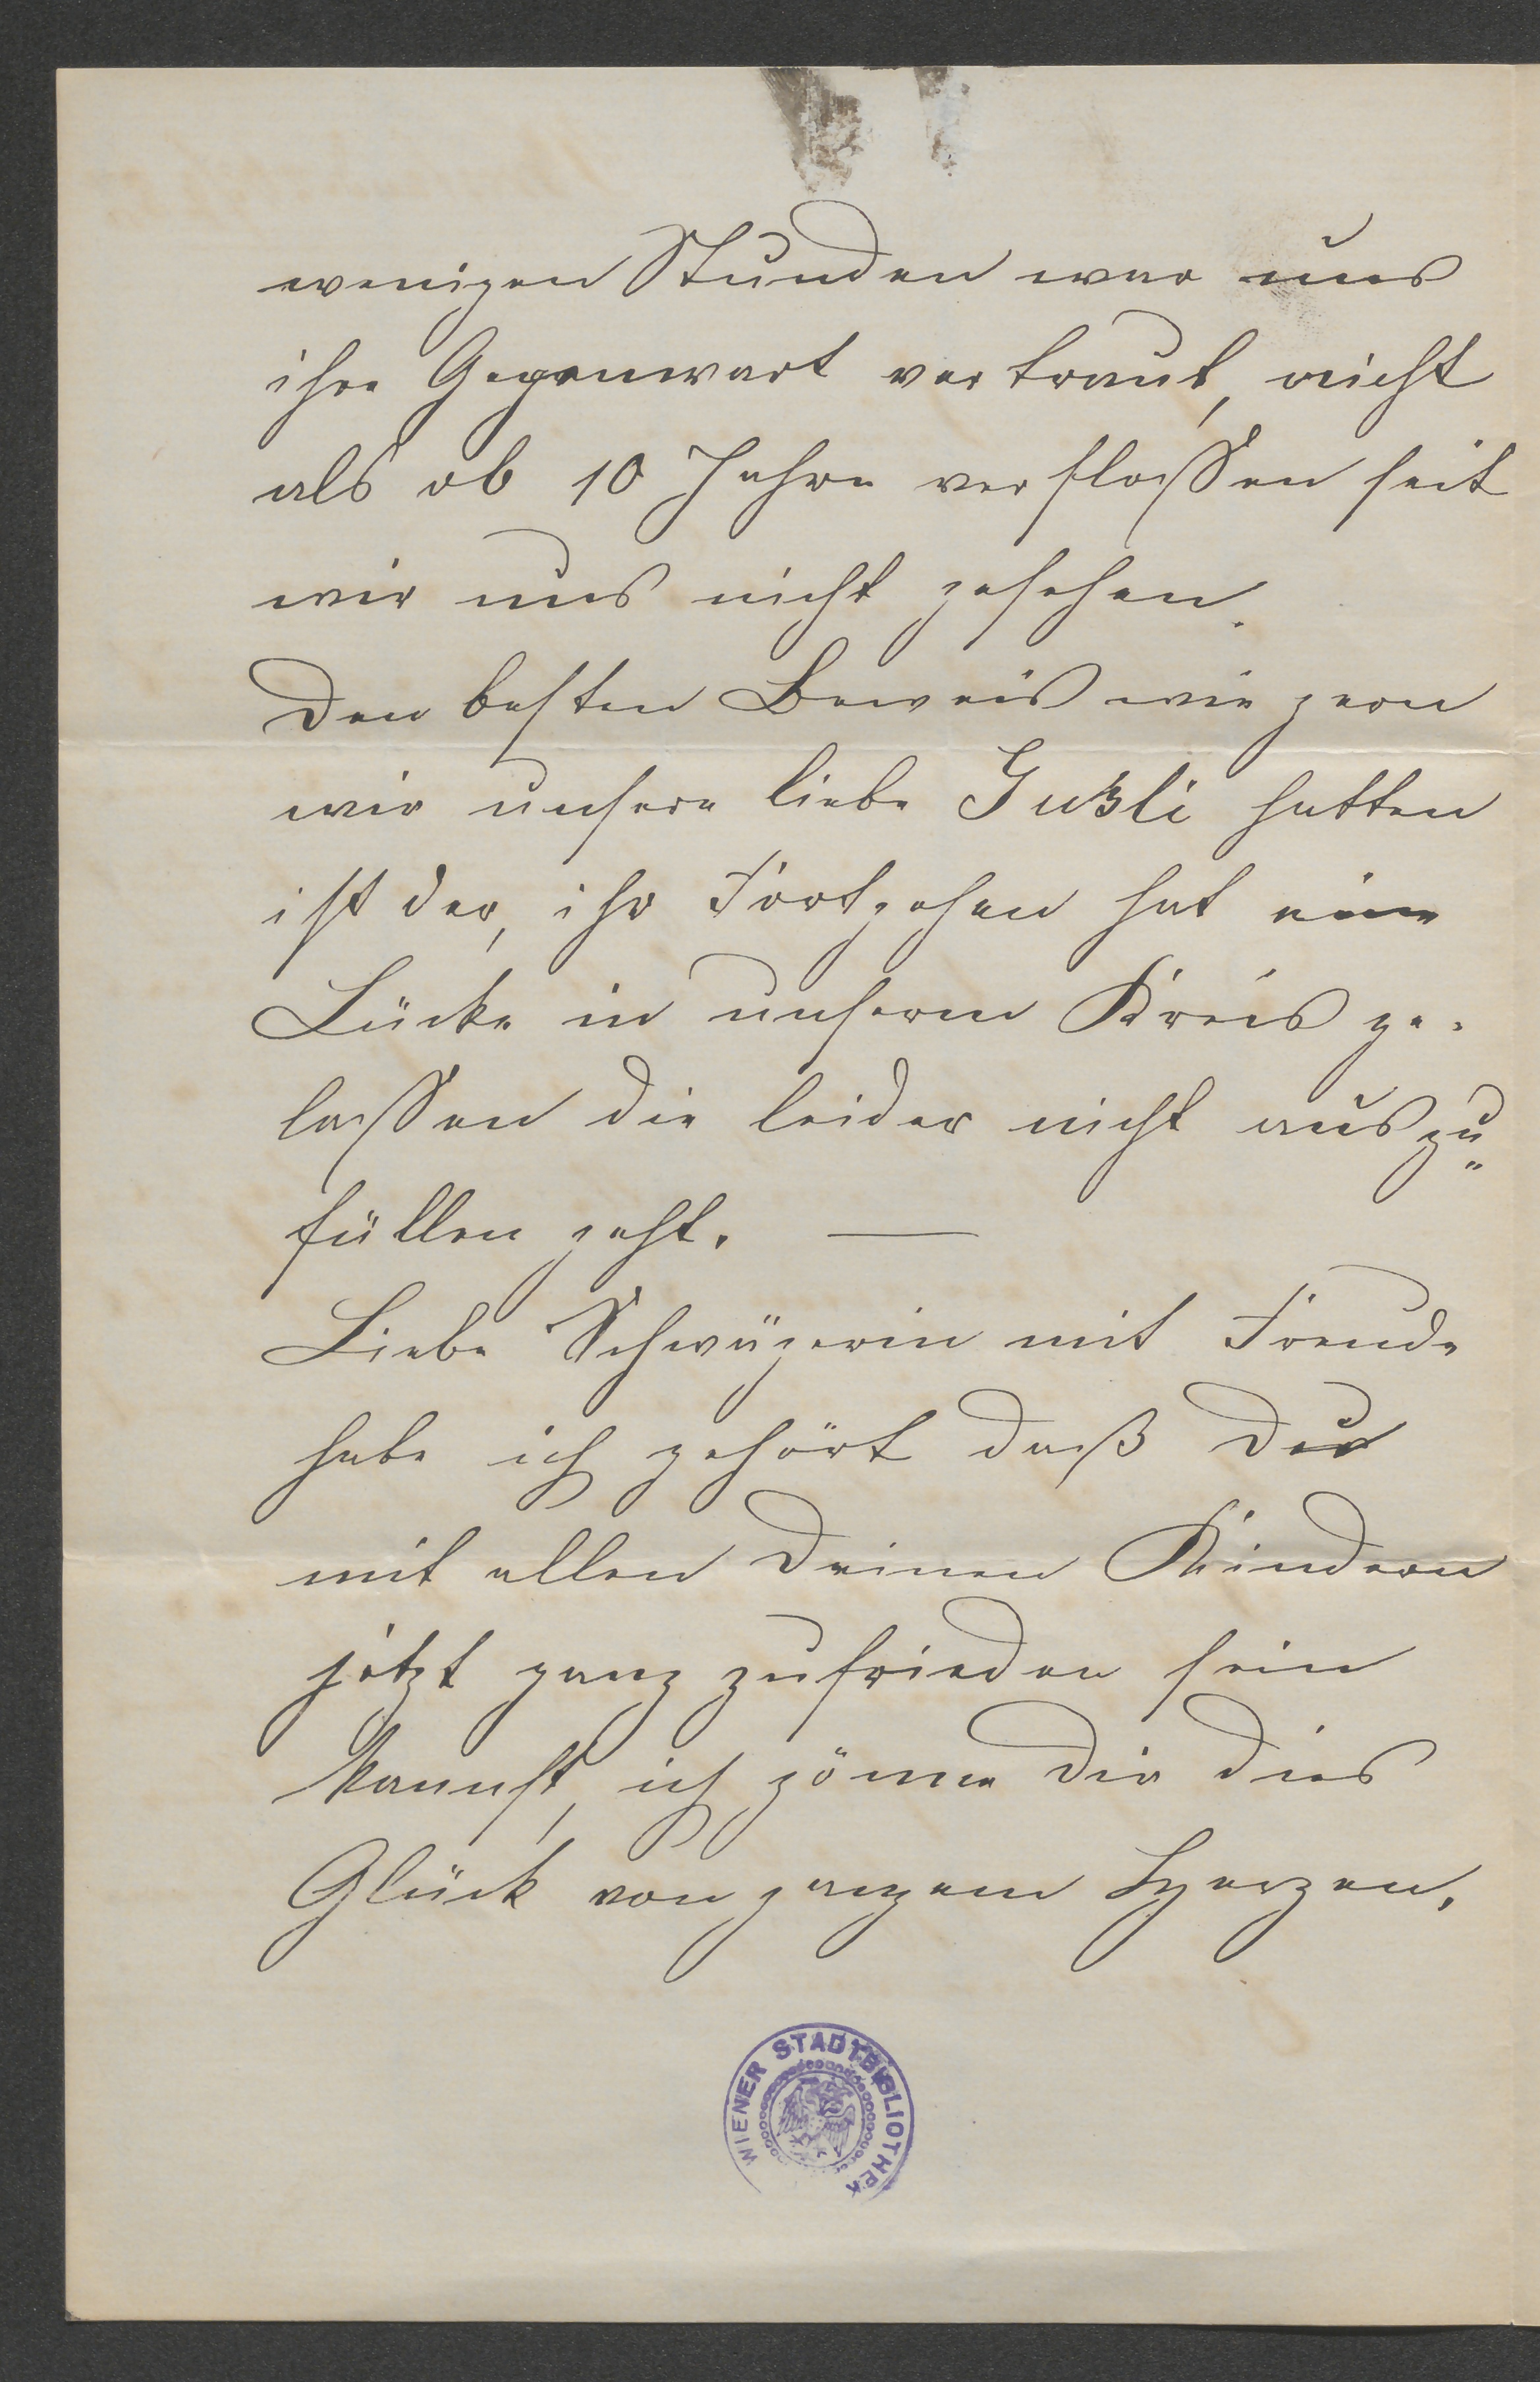 wenigen Stunden war uns
ihre Gegenwart vertraut, nicht
als ob 10 Jahre verflossen seit
wir uns nicht gesehen.
Den besten Beweis wie gern
wir unsere liebe Gußli hatten
ist der, ihr Fortgehen hat eine
Lücke in unserm Kreis ge-
lassen die leider nicht auszu=
füllen geht. —
Liebe Schwägerin mit Freude
habe ich gehört daß Du
mit allen Deinen Kindern
jetzt ganz zufrieden sein
kannst, ich gönne Dir dies
Glück von ganzem Herzen,
WIENER STADTBIBLIOTHEK